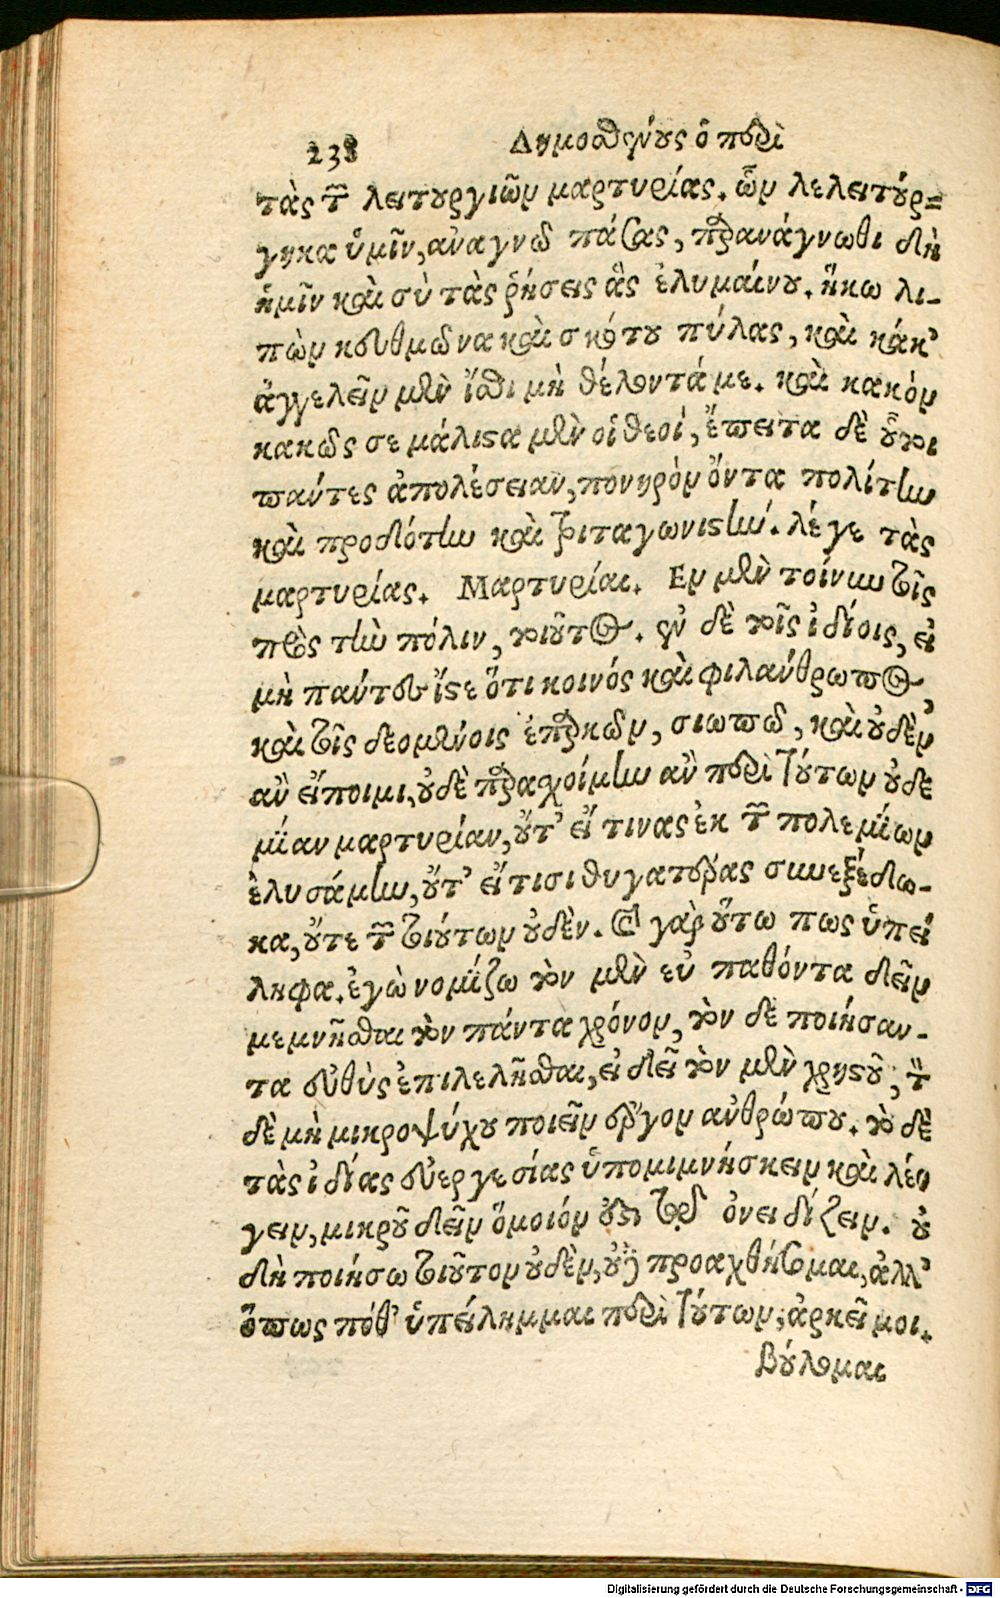 238 Δημοσθένους ὁ περὶ
τὰς τῶν λειτουργιῶν μαρτυρίας. ὧν λελειτούρ=
γηκα ὑμῖν, ἀναγνῶ πάσας, παρανάγνωθι δὴ
ἡμῖν καὶ σὺ τὰς ῥήσεις ἃς ἐλυμαίνου. ἥκω λι-
πὼν κευθμῶνα καὶ σκότου πύλας, καὶ κάκ’
ἀγγελεῖν μὲν ἴσθι μὴ θέλοντά με. καὶ κακὸν
κακῶς σε μάλιστα μὲν οἱ θεοί, ἔπειτα δὲ οὗτοι
πάντες ἀπολέσειαν, πονηρὸν ὄντα πολίτην
καὶ προδότην καὶ τριταγωνιστήν. λέγε τὰς
μαρτυρίας. Μαρτυρίαι. Ἐν μὲν τοίνυν τοῖς
πρὸς τὴν πόλιν, τοιοῦτος. ἐν δὲ τοῖς ἰδίοις, εἰ
μὴ πάντες ἴστε ὅτι κοινός καὶ φιλάνθρωπος,
καὶ τοῖς δεομένοις ἐπαρκῶν, σιωπῶ, καὶ οὐδὲν
ἂν εἴποιμι, οὐδὲ παρασχοίμην ἂν περὶ τούτων οὐδε
μίαν μαρτυρίαν, οὔτ’ εἴ τινας ἐκ τῶν πολεμίων
ἐλυσάμην, οὔτ’ εἴ τισι θυγατέρας συνεξέδω-
κα, οὔτε τῶν τοιούτων οὐδὲν. Καὶ γὰρ οὕτω πως ὑπεί
ληφα. ἐγὼ νομίζω τὸν μὲν εὖ παθόντα δεῖν
μεμνῆσθαι τὸν πάντα χρόνον, τὸν δὲ ποιήσαν-
τα εὐθὺς ἐπιλελῆσθαι, εἰ δεῖ τὸν μὲν χρηστοῦ, τὸν
δὲ μὴ μικροψύχου ποιεῖν ἔργον ἀνθρώπου. τὸ δὲ
τὰς ἰδίας εὐεργεσίας ὑπομιμνήσκειν καὶ λέ
γειν, μικροῦ δεῖν ὅμοιόν ἐστι τῷ ὀνειδίζειν. οὐ
δὴ ποιήσω τοιοῦτον οὐδὲν, οὐδὲ προαχθήσομαι, ἀλλ’
ὅπως πόθ’ ὑπείλημμαι περὶ τούτων, ἀρκεῖ μοι.
βούλομαι
Digitalisierung gefördert durch die Deutsche Forschungsgemeinschaft - DFG